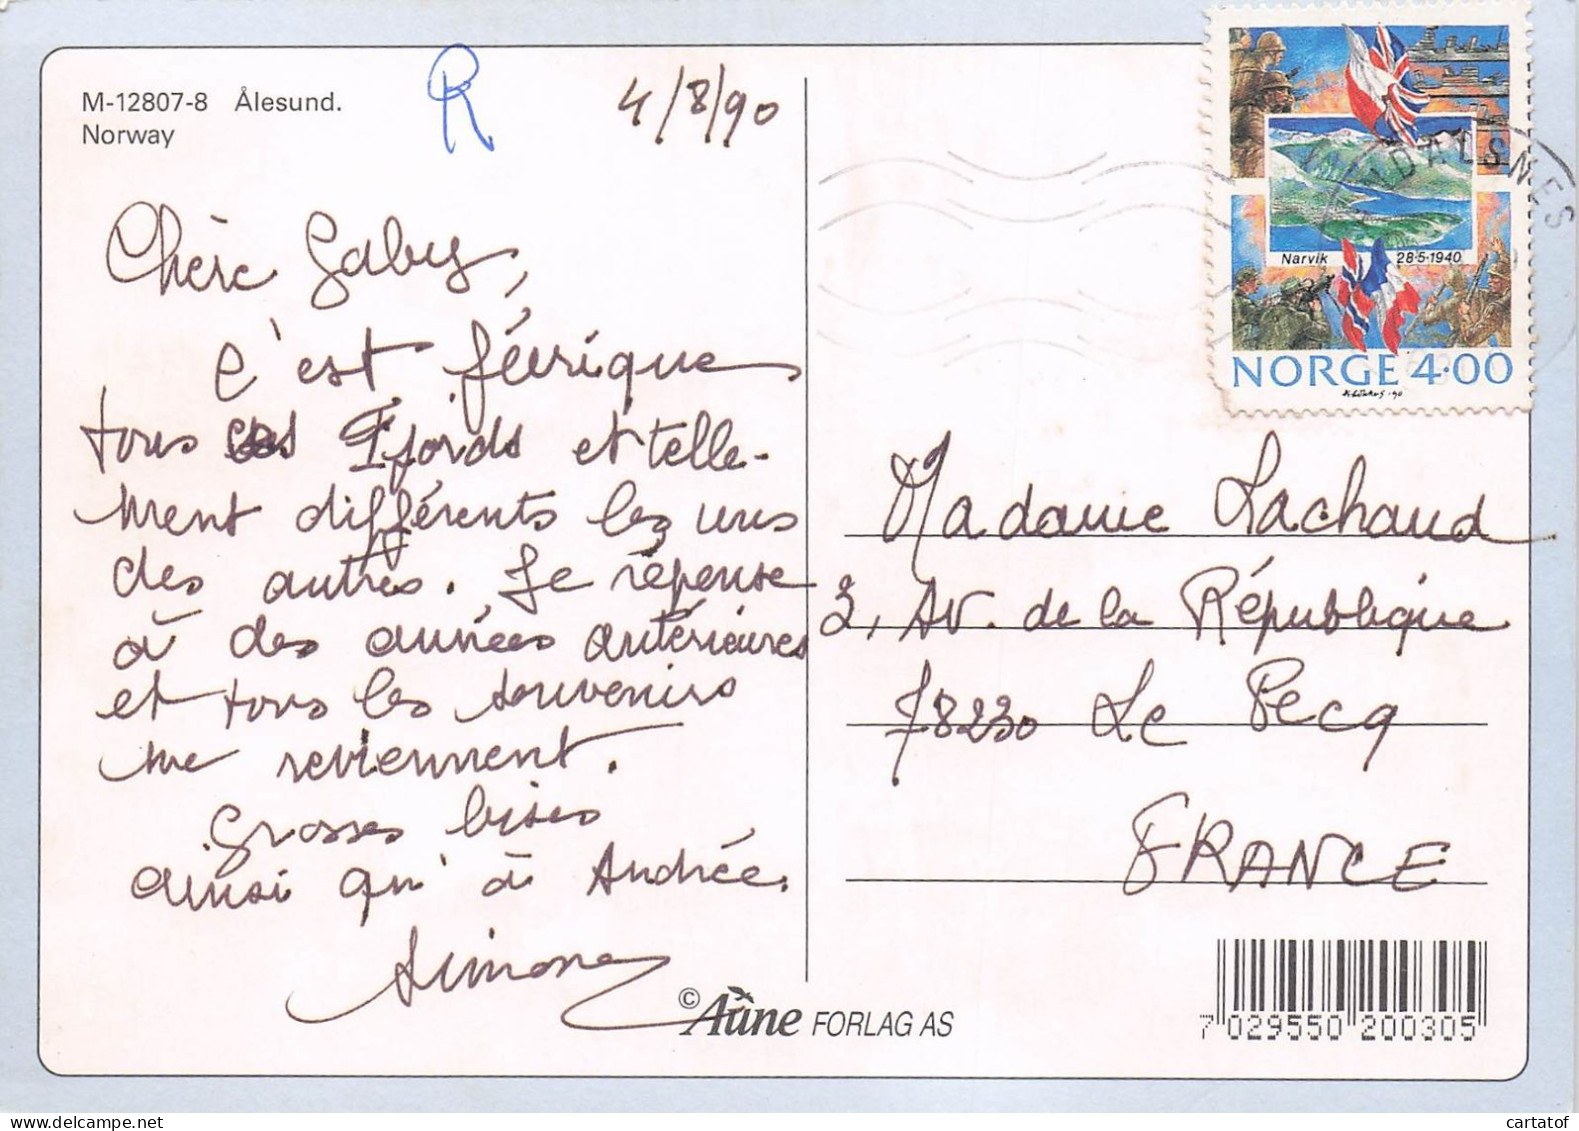 M-12807-8 Ålesund.
Norway
R
4/8/90
Chère Gaby,
c'est féérique
tous ces Fjords et telle-
ment différents les uns
des autres. Je repense
à des années antérieures
et tous les souvenirs
me reviennent.
Grosses bises
ainsi qu'à Andrée.
Simone
© Aune FORLAG AS
Narvik 28·5·1940
NORGE 4·00
NDALSNES
Madame Lachaud
2, Av. de la République
78230 Le Pecq
FRANCE
7 029550 200305
cartatof
www.delcampe.net